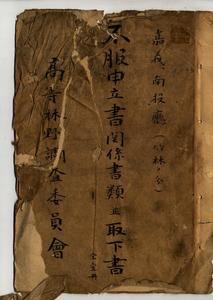 嘉義、南投廳(竹林ノ分)
不服申立書関係書類並取下書
全壹冊
高等林野調査委員會